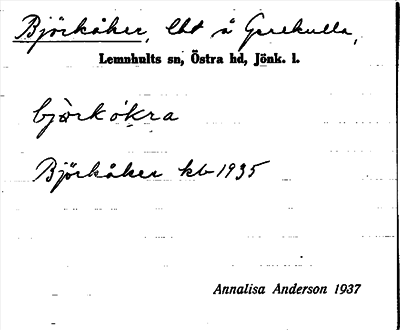 Björkåker, lht å Gserekulla,
Lemnhults sn, Östra hd, Jönk. l.
bjòrkókra
Björkåker kb 1935
Annalisa Anderson 1937